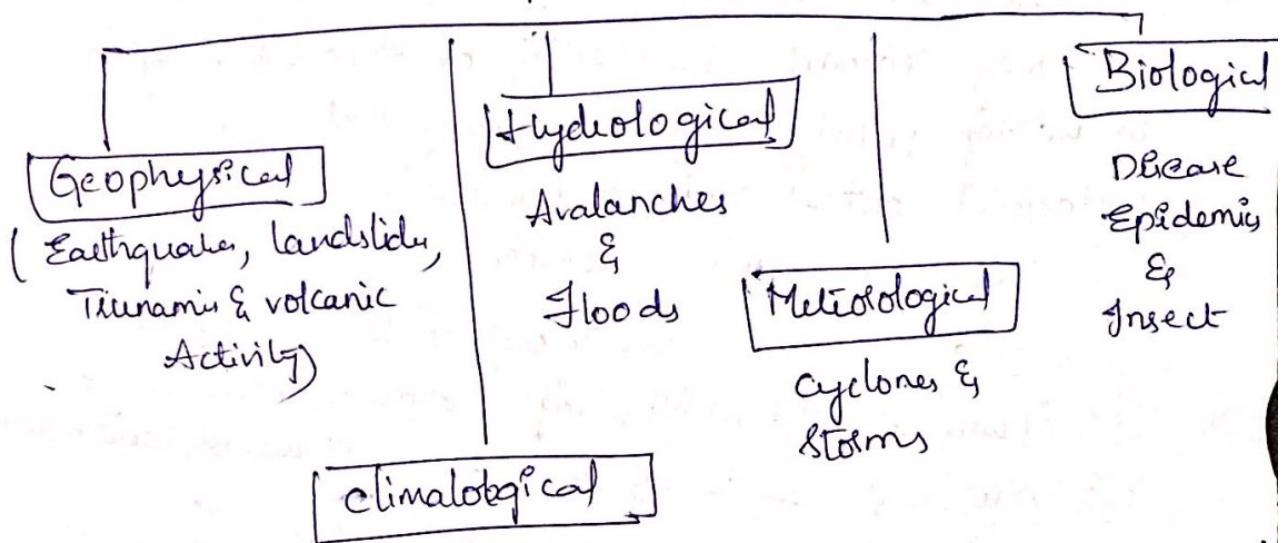 Geophysical
( Earthquakes, landslides,
Tsunamis & volcanic
Activity)
Hydrological
Avalanches
&
Floods
Meteorological
Cyclones &
Storms
Biological
Disease
Epidemics
&
Insect
Climatological